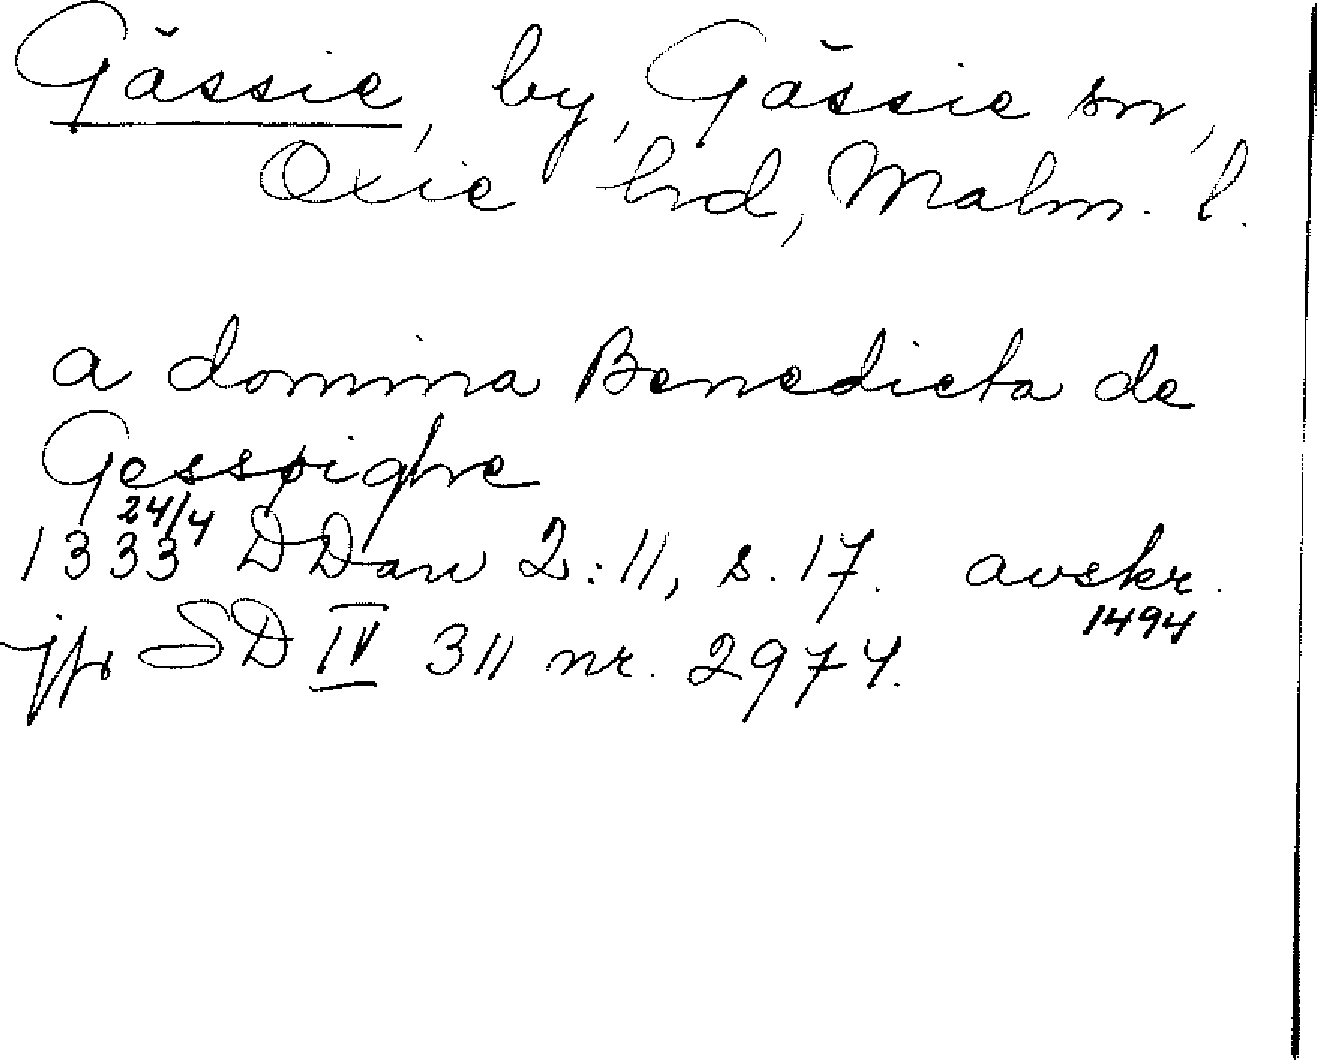 Gässie, by, Gässie sn,
Oxie hrd, Malm. l.
a domina Benedicta de
Gessøighe
1333 24/4 DDan 2:11, s. 17. avskr. 1494
jfr SD IV 311 nr. 2974.